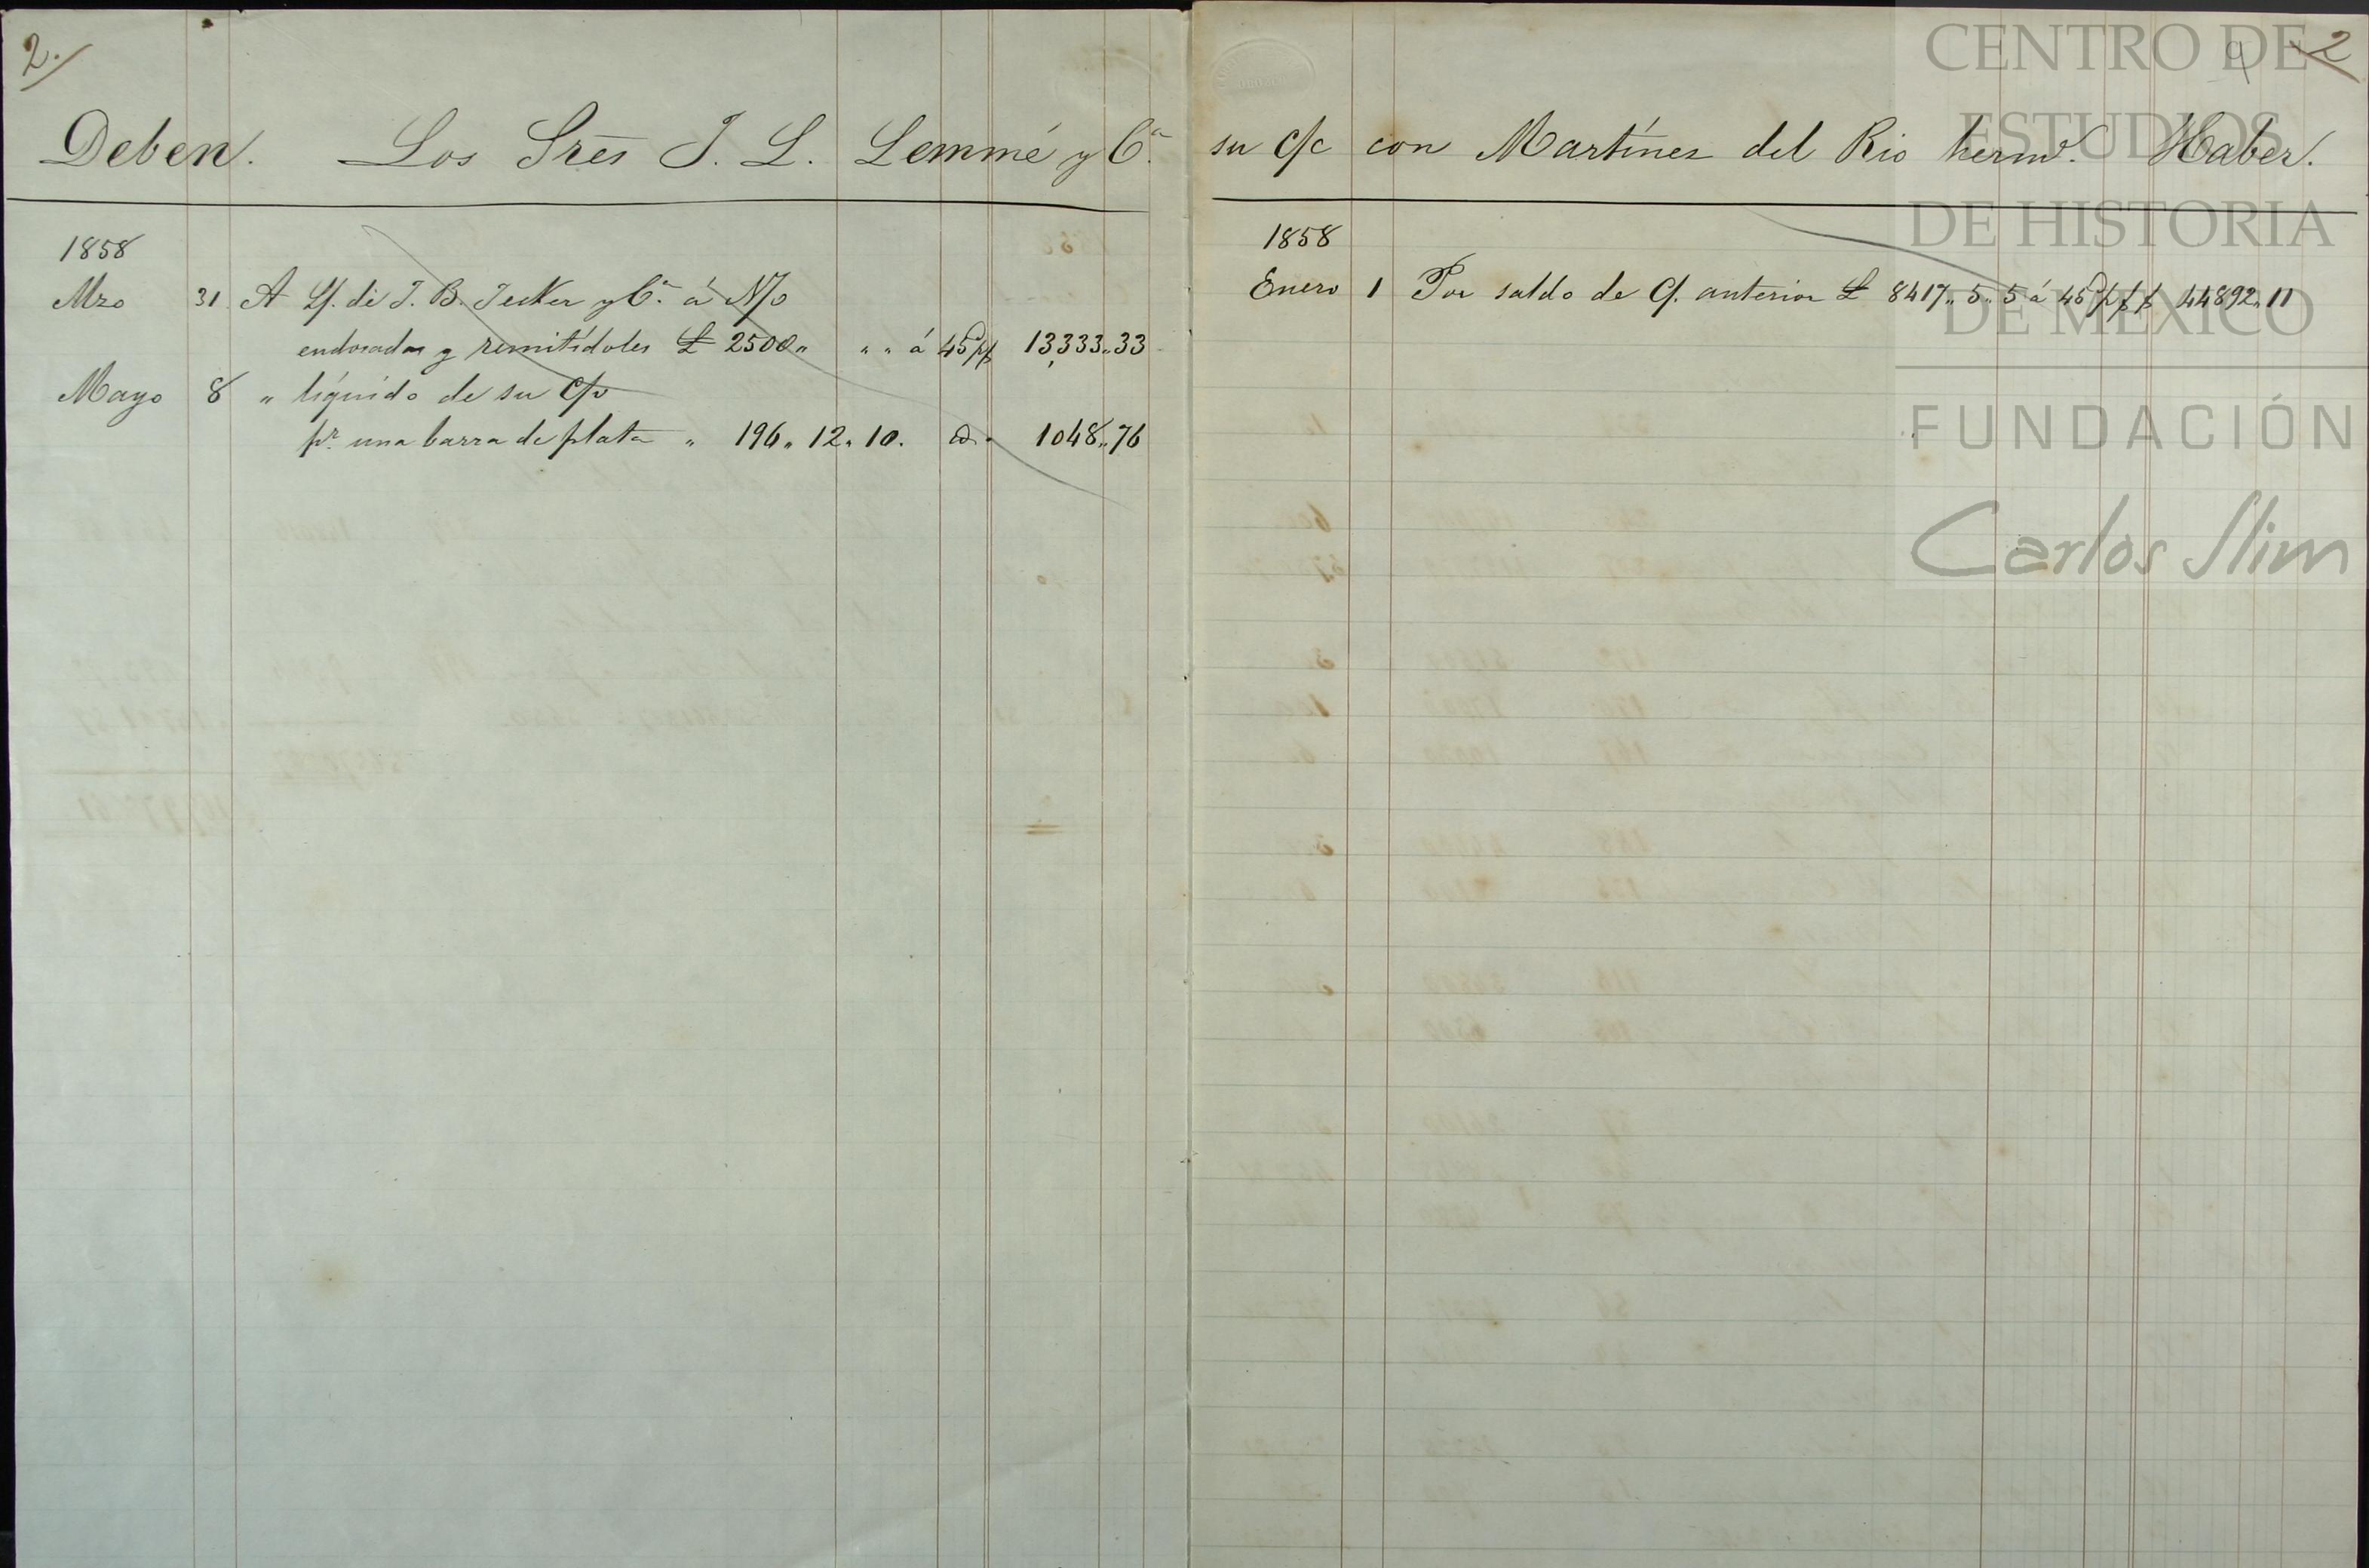 2.
Deben. Los Sres J. L. Lemmé y Ca.
1858
Mzo 31 A L/. de J. B. Jecker y Ca. á N/o
endosadas y remitídoles £ 2500„ „ „ á 45d p$ 13333„33
Mayo 8 „ líquido de su c/v
pr. una barra de plata „ 196„12„10. 1048„76
2
su c/c con Martínez del Rio hermos. Haber.
1858
Enero 1 Por saldo de C/. anterior £ 8417„5„5 á 45d p$ $ 44892„11
CENTRO DE
ESTUDIOS
DE HISTORIA
DE MÉXICO
FUNDACIÓN
Carlos Slim